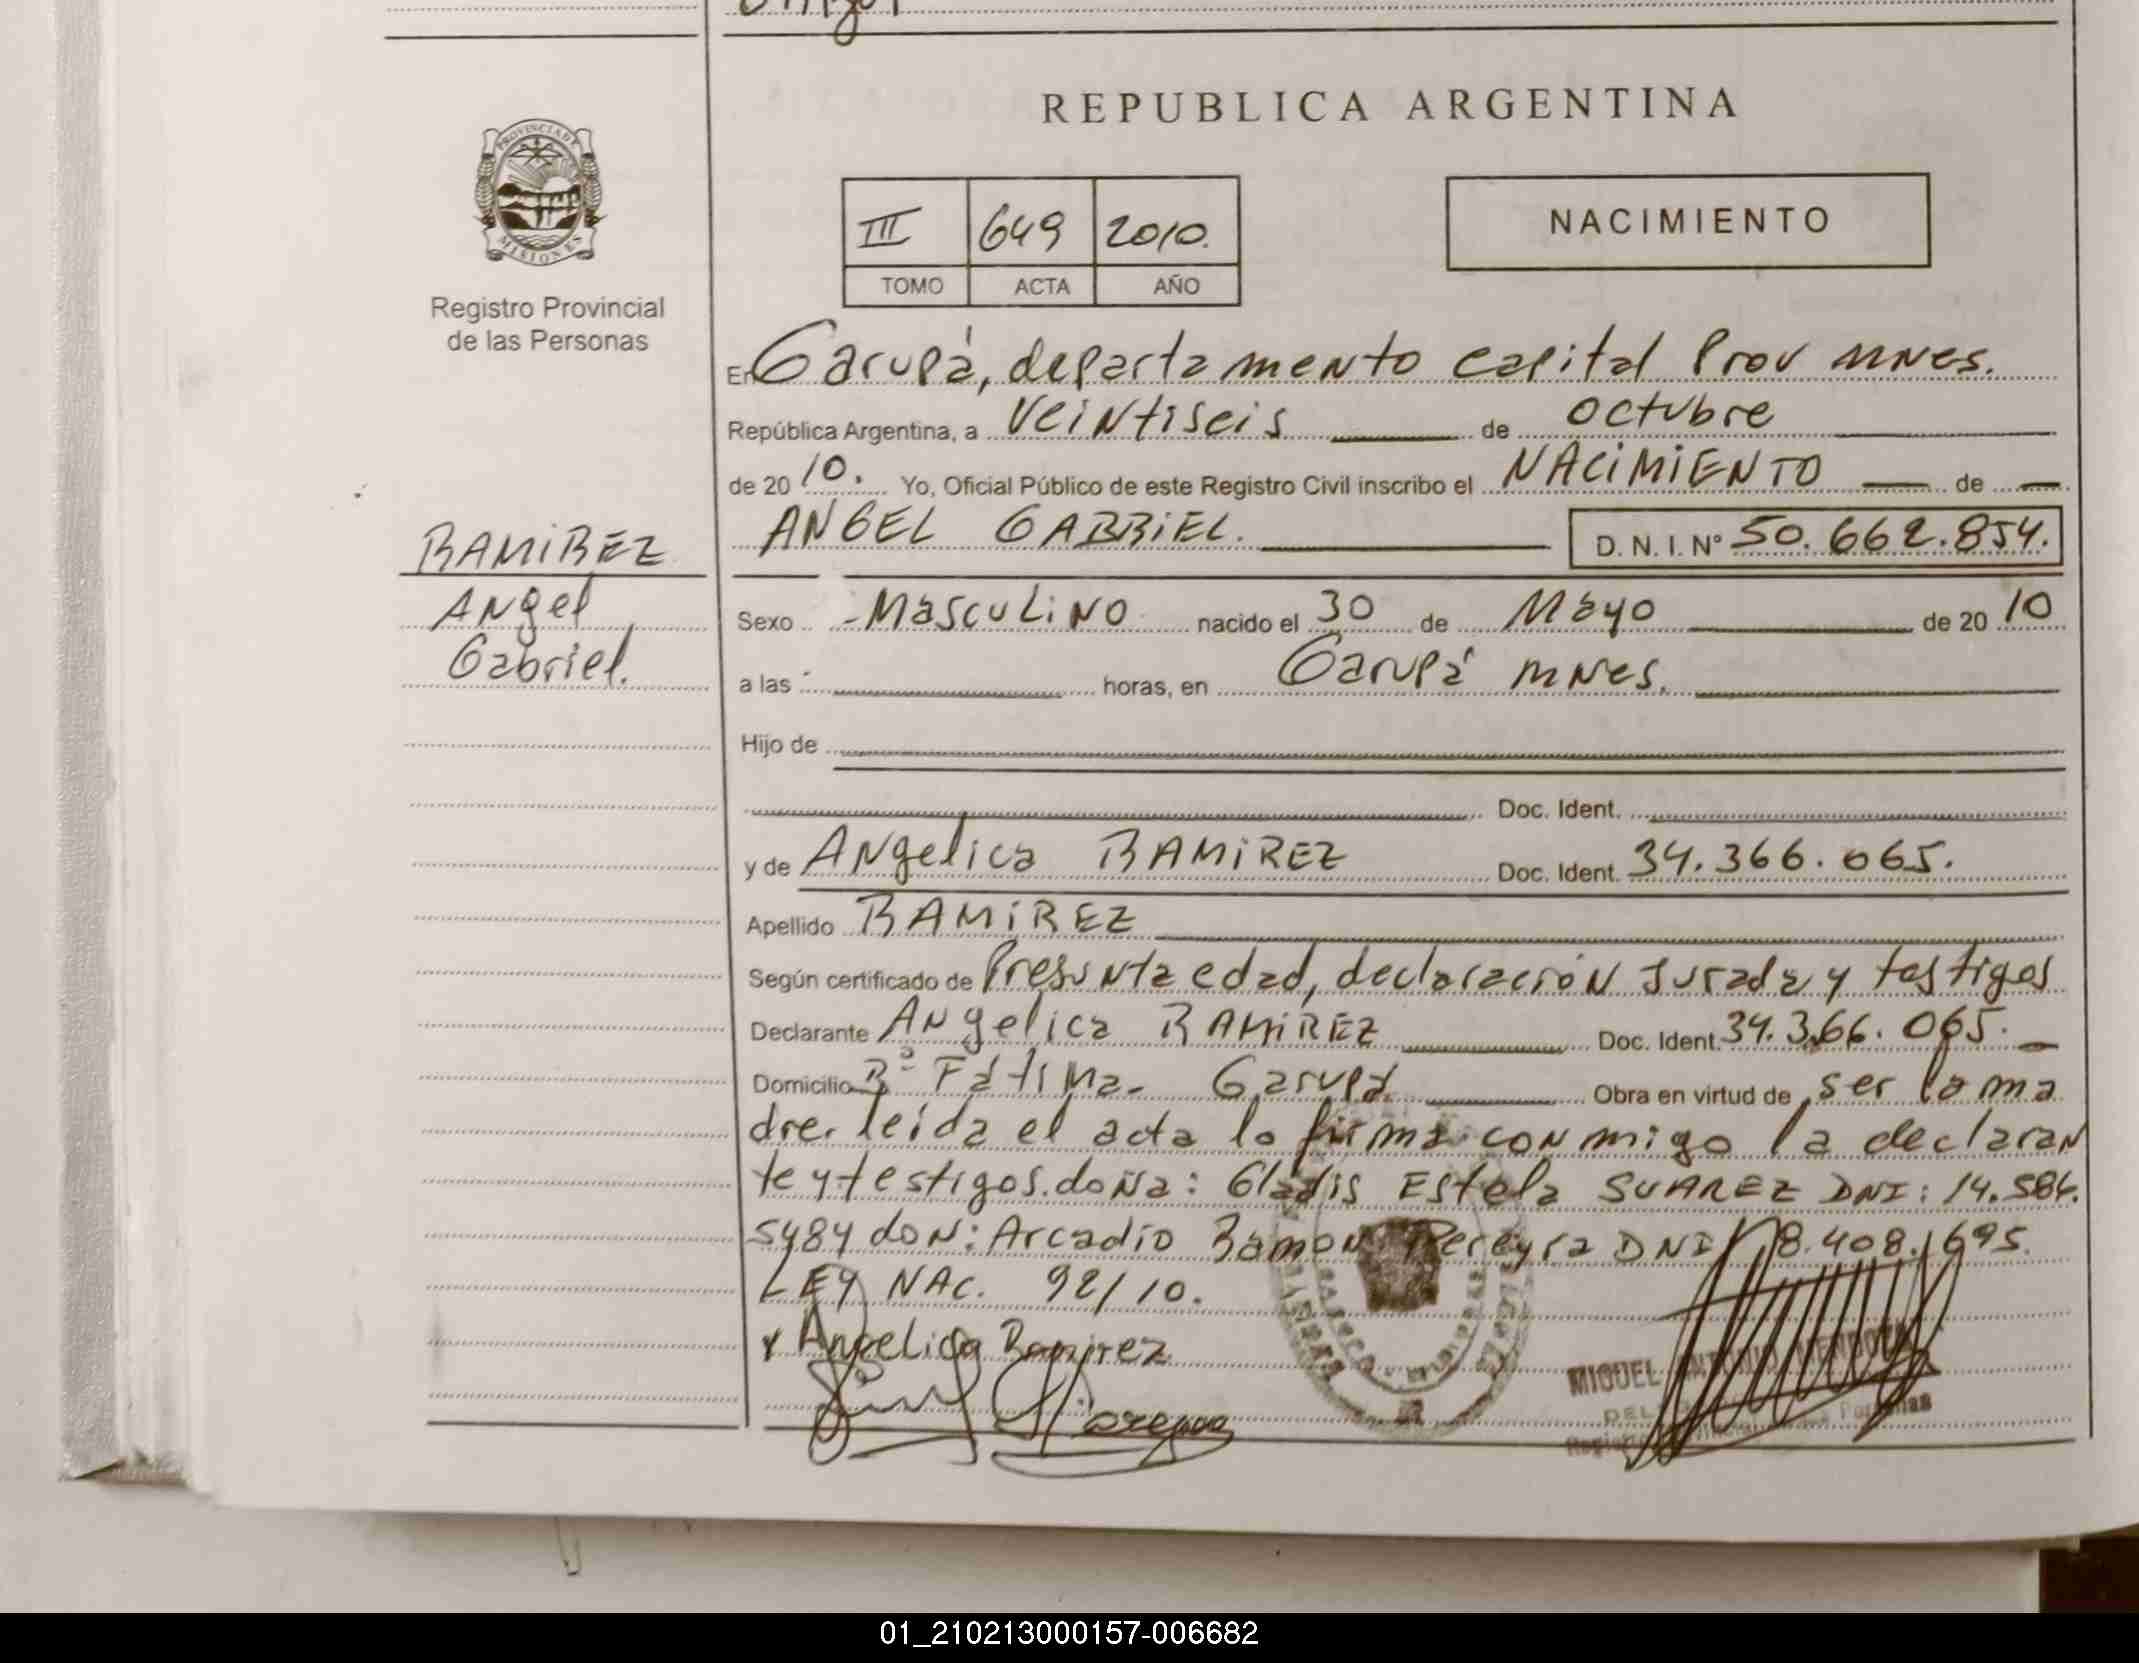 REPUBLICA ARGENTINA
PROVINCIA D
MISIONES
Registro Provincial
de las Personas
III 649 2010.
TOMO ACTA AÑO
NACIMIENTO
En Garupá, departamento capital Prov mnes.
República Argentina, a veintiseis de octubre
de 20 10. Yo, Oficial Público de este Registro Civil inscribo el NACIMIENTO de
ANGEL GABRIEL. D. N. I. Nº 50.662.854.
RAMIREZ
Angel
Gabriel.
Sexo Masculino nacido el 30 de Mayo de 20 10
a las horas, en Garupá mnes.
Hijo de
Doc. Ident.
y de Angelica RAMIREZ Doc. Ident. 34.366.065.
Apellido RAMIREZ
Según certificado de Presunta edad, declaración Jurada y testigos
Declarante Angelica RAMIREZ Doc. Ident. 34.366.065.
Domicilio Bº Fátima - Garupá Obra en virtud de ser la ma
dre. leida el acta lo firma conmigo la declaran
te y testigos. doña: Gladis Estela SUAREZ DNI: 14.584.
548 y don: Arcadio Ramon Pereyra DNI 8.408.695.
LEY NAC. 92/10.
Angelica Ramirez
MIGUEL ANTONIO MENDOZA
01_210213000157-006682